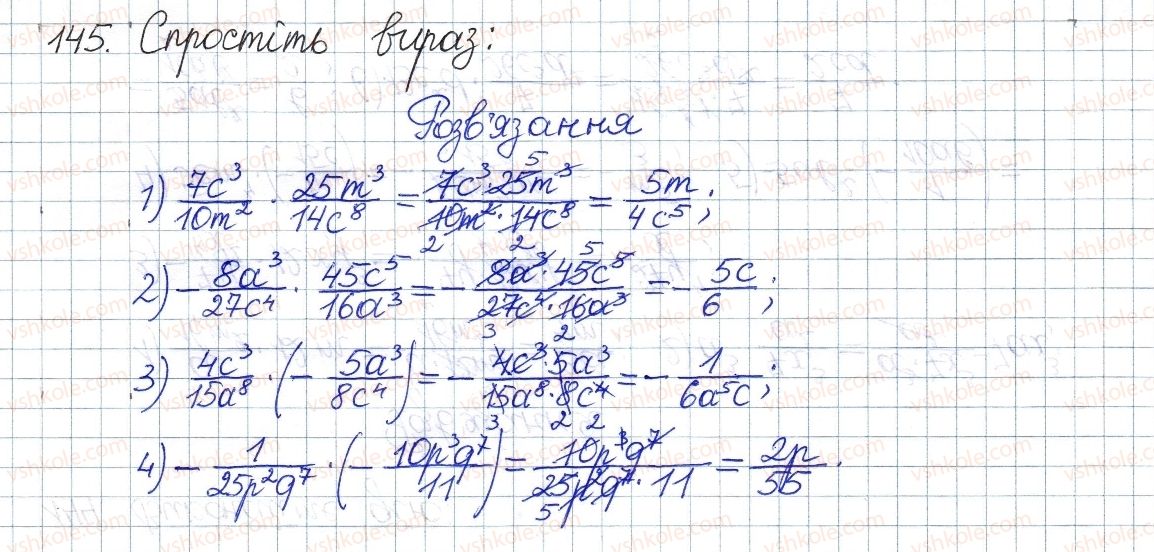 145. Спростіть вираз:
Розв'язання
1) 7c³/10m² · 25m³/14c⁸ = 7c³·25m³/10m²·14c⁸ = 5m/4c⁵;
2) -8a³/27c⁴ · 45c⁵/16a³ = -8a³·45c⁵/27c⁴·16a³ = -5c/6;
3) 4c³/15a⁸ · (-5a³/8c⁴) = -4c³·5a³/15a⁸·8c⁴ = -1/6a⁵c;
4) -1/25p²q⁷ · (-10p³q⁷/11) = 10p³q⁷/25p²q⁷·11 = 2p/55.